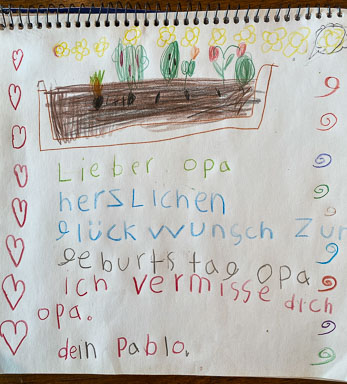 Lieber opa
herslichen
glückwunsch Zur
geburtstag opa
ich vermisse dich
opa.
dein Pablo.